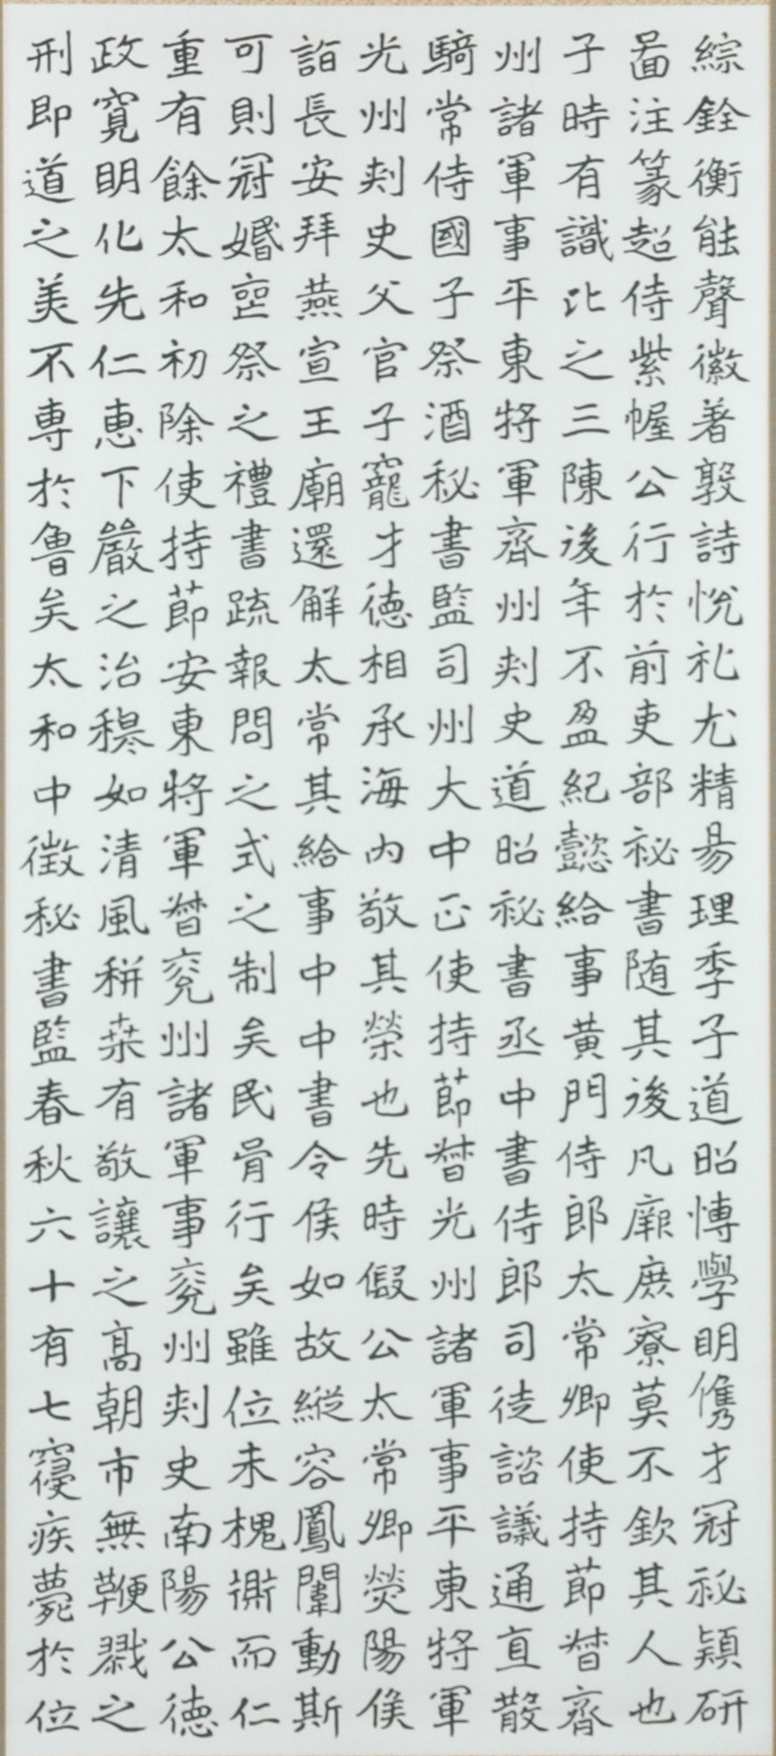 綜銓衡能聲徽著敦詩悅礼尤精易理季子道昭博學明儁才冠祕穎研
啚注篆超侍紫幄公行於前吏部祕書随其後凡厥庶寮莫不欽其人也
子時有識比之三陳後年不盈紀懿給事黄門侍郎太常卿使持節督齊
州諸軍事平東將軍齊州刾史道昭祕書丞中書侍郎司徒諮議通直散
騎常侍國子祭酒秘書監司州大中正使持節督光州諸軍事平東將軍
光州刾史父官子寵才德相承海内敬其榮也先時假公太常卿熒陽侯
詣長安拜燕宣王廟還解太常其給事中中書令侯如故縱容鳳闈動斯
可則冠婚喪祭之禮書疏報問之式之制矣民胥行矣雖位未槐衡而仁
重有餘太和初除使持節安東將軍督兖州諸軍事兖州刾史南陽公德
政寬明化先仁惠下嚴之治穆如清風耕桒有敬讓之髙朝市無鞭戮之
刑即道之美不専於魯矣太和中徴秘書監春秋六十有七寢疾薨於位